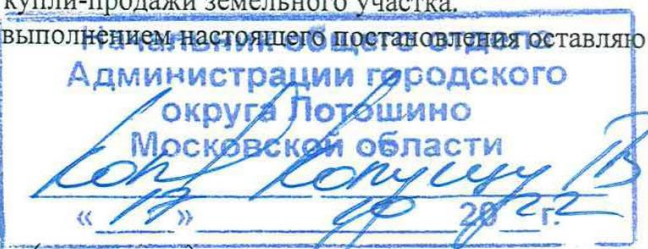 купли-продажи земельного участка.
выполнением настоящего постановления оставляю
Начальник общего отдела
Администрации городского
округа Лотошино
Московской области
« 17 » 10 20 22 г.